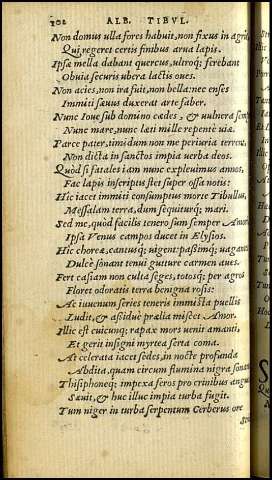 102 ALB. TIBVL.
Non domus ulla fores habuit, non fixus in agris
Qui regeret certis finibus arua lapis.
Ipsæ mella dabant quercus, ultroq; ferebant
Obuia securis ubera lactis oues.
Non acies, non ira fuit, non bella: nec enses
Immiti sæuus duxerat arte faber.
Nunc Ioue sub domino cædes, & uulnera semper,
Nunc mare, nunc læti mille repente uiæ.
Parce pater, timidum non me periuria terrent,
Non dicta in sanctos impia uerba deos.
Quòd si fatales iam nunc expleuimus annos,
Fac lapis inscriptis stet super ossa notis:
Hic iacet immiti consumptus morte Tibullus,
Messalam terra, dum sequiturq; mari.
Sed me, quòd facilis tenero sum semper Amori,
Ipsa Venus campos ducet in Elysios.
Hic choreæ, cantusq; uigent: passimq; uagantes
Dulcè sonant tenui gutture carmen aues.
Fert casiam non culta seges, totosq; per agros
Floret odoratis terra benigna rosis:
Ac iuuenum series teneris immista puellis
Ludit, & assiduè prælia miscet Amor.
Illic est cuicunq; rapax mors uenit amanti,
Et gerit insigni myrtea serta coma.
At celerata iacet sedes, in nocte profunda
Abdita, quam circum flumina nigra sonant:
Thisiphoneq; impexa feros pro crinibus angues
Sæuit, & huc illuc impia turba fugit.
Tum niger in turba serpentum Cerberus ore